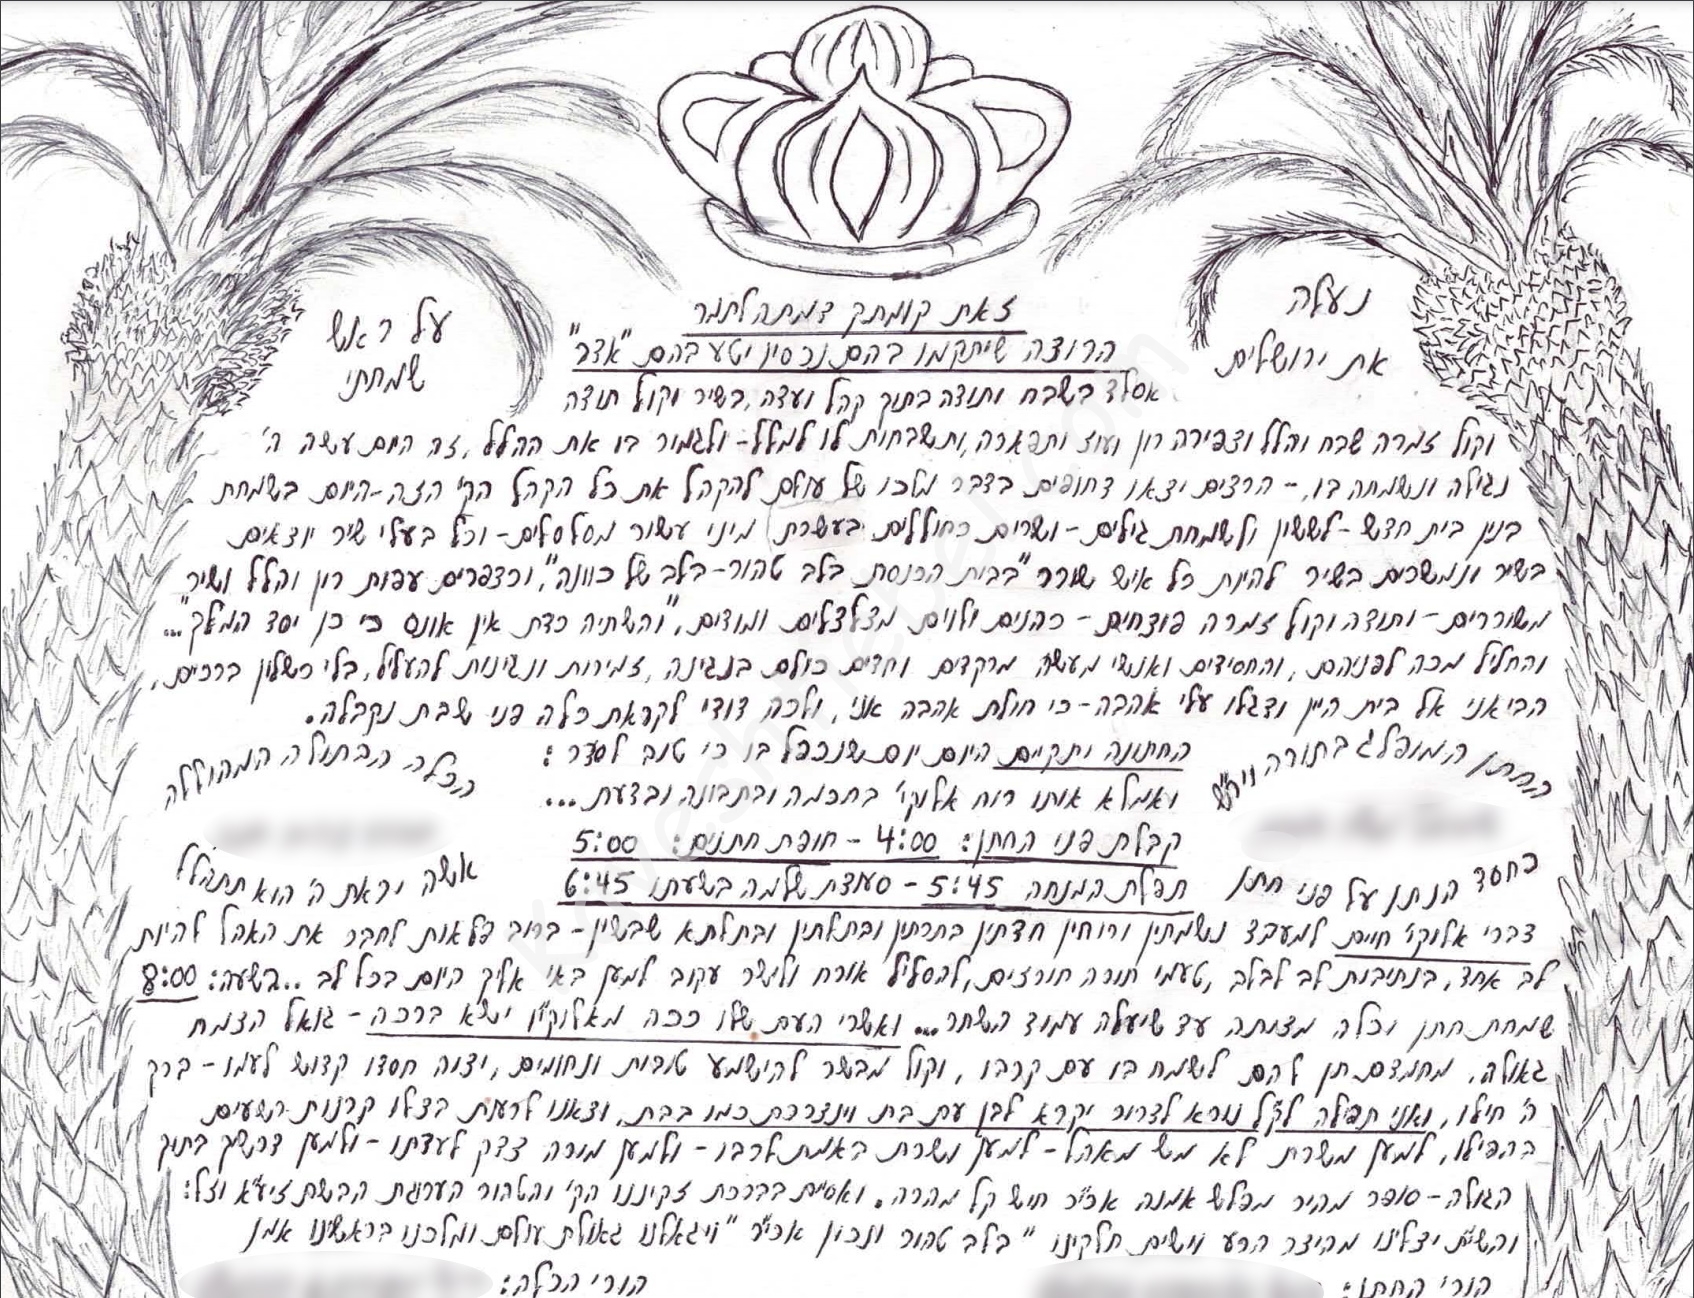 נעלה
את ירושלים
על ראש
שמחתי
זאת קומתך דמתה לתמר
הרוצה שיתקמו בהם נכסין יטע בהם "אדר"
אסלד בשבח ותודה בתוך קהל ועדה, בשיר וקול תודה
וקול זמרה שבח והלל וצפירה רון ועוז ותפארה, ותשבחות לו למלל - ולגמור בו את ההלל, זה היום עשה ה'
נגילה ונשמחה בו, - הרצים יצאו דחופים בדבר מלכו של עולם להקהל את כל הקהל הק' הזה - היום בשמחת
בנין בית חדש - לששון ולשמחת גילים - ושרים כחוללים בעשרת מיני עשור מסלסלים - וכל בעלי שיר יוצאים
בשיר ונמשכים בשיר להיות כל איש שורר "בבית הכנסת בלב טהור - בלב של כוונה", וכצפרים עפות רון והלל ושיר
משוררים - ותודה וקול זמרה פוצחים - כהנים ולוים מצלצלים ומודים, "והשתיה כדת אין אונס כי כן יסד המלך"...
והחליל מכה לפניהם, והחסידים ואנשי מעשה מרקדים וחדים כולם בנגינה, זמירות ונגינות להעליל, בלי כשלון ברכים,
הביאני אל בית היין ודגלו עלי אהבה - כי חולת אהבה אני, ולכה דודי לקראת כלה פני שבת נקבלה.
החתן המופלג בתורה ויר"ש
הכלה הבתולה המהוללה
החתונה יתקיים היום יום שנכפל בו כי טוב לסדר:
ואמלא אותו רוח אלוקי' בחכמה ובתבונה ובדעת...
קבלת פני החתן: 4:00 - חופת חתנים: 5:00
תפלת המנחה 5:45 - סעודת שלמה בשעתו 6:45
כחסד הנתן על פני חתן
אשה יראת ה' הוא תתהלל
דברי אלוקי' חיים למעבד נשמתין ורוחין חדתין בתרתין ובתלתין ובתלתא שבשין - ברוב פלאות לחבר את האהל להיות
לב אחד, בנתיבות לב לבלב, טעמי תורה חורזים, להסליל אורח ולישר עקוב למען באי אליך היום בכל לב .. בשעה: 8:00
שמחת חתן וכלה מצותה עד שיעלה עמוד השחר... ואשרי העם שלו ככה מאלוקיו ישא ברכה - גואל הצמח
גאולה, מחמדם תן להם לשמח בו עם קרבו, וקול מבשר להישמע טובות ונחומים, יצוה חסדו קדוש לעמו - ברך
ה' חילו, ואני תפילה לקל נורא לדרור יקרא לבן עם בת וינצרכם כמו בבת, וצאנו לרעות בצלו קרנות השעים
בהפילו, למען משרת לא מש מאהל - למען נשרת באמת לרבו - ולמען מורה צדק לעדתו - ולמען דרשך בתוך
הגולה - סופר מהיר מפלש אמנה אכי"ר חיש קל מהרה. ואסיים בברכת זקיננו הק' והטהור הערוגת הבשם זיע"א וזל:
והשי"ת יצלינו מהיצר הרע וישים חלקינו "בלב טהור ונכון אכי"ר "ויגאלנו גאולת עולם ומלכנו בראשינו אמן
הורי החתן:
הורי הכלה: